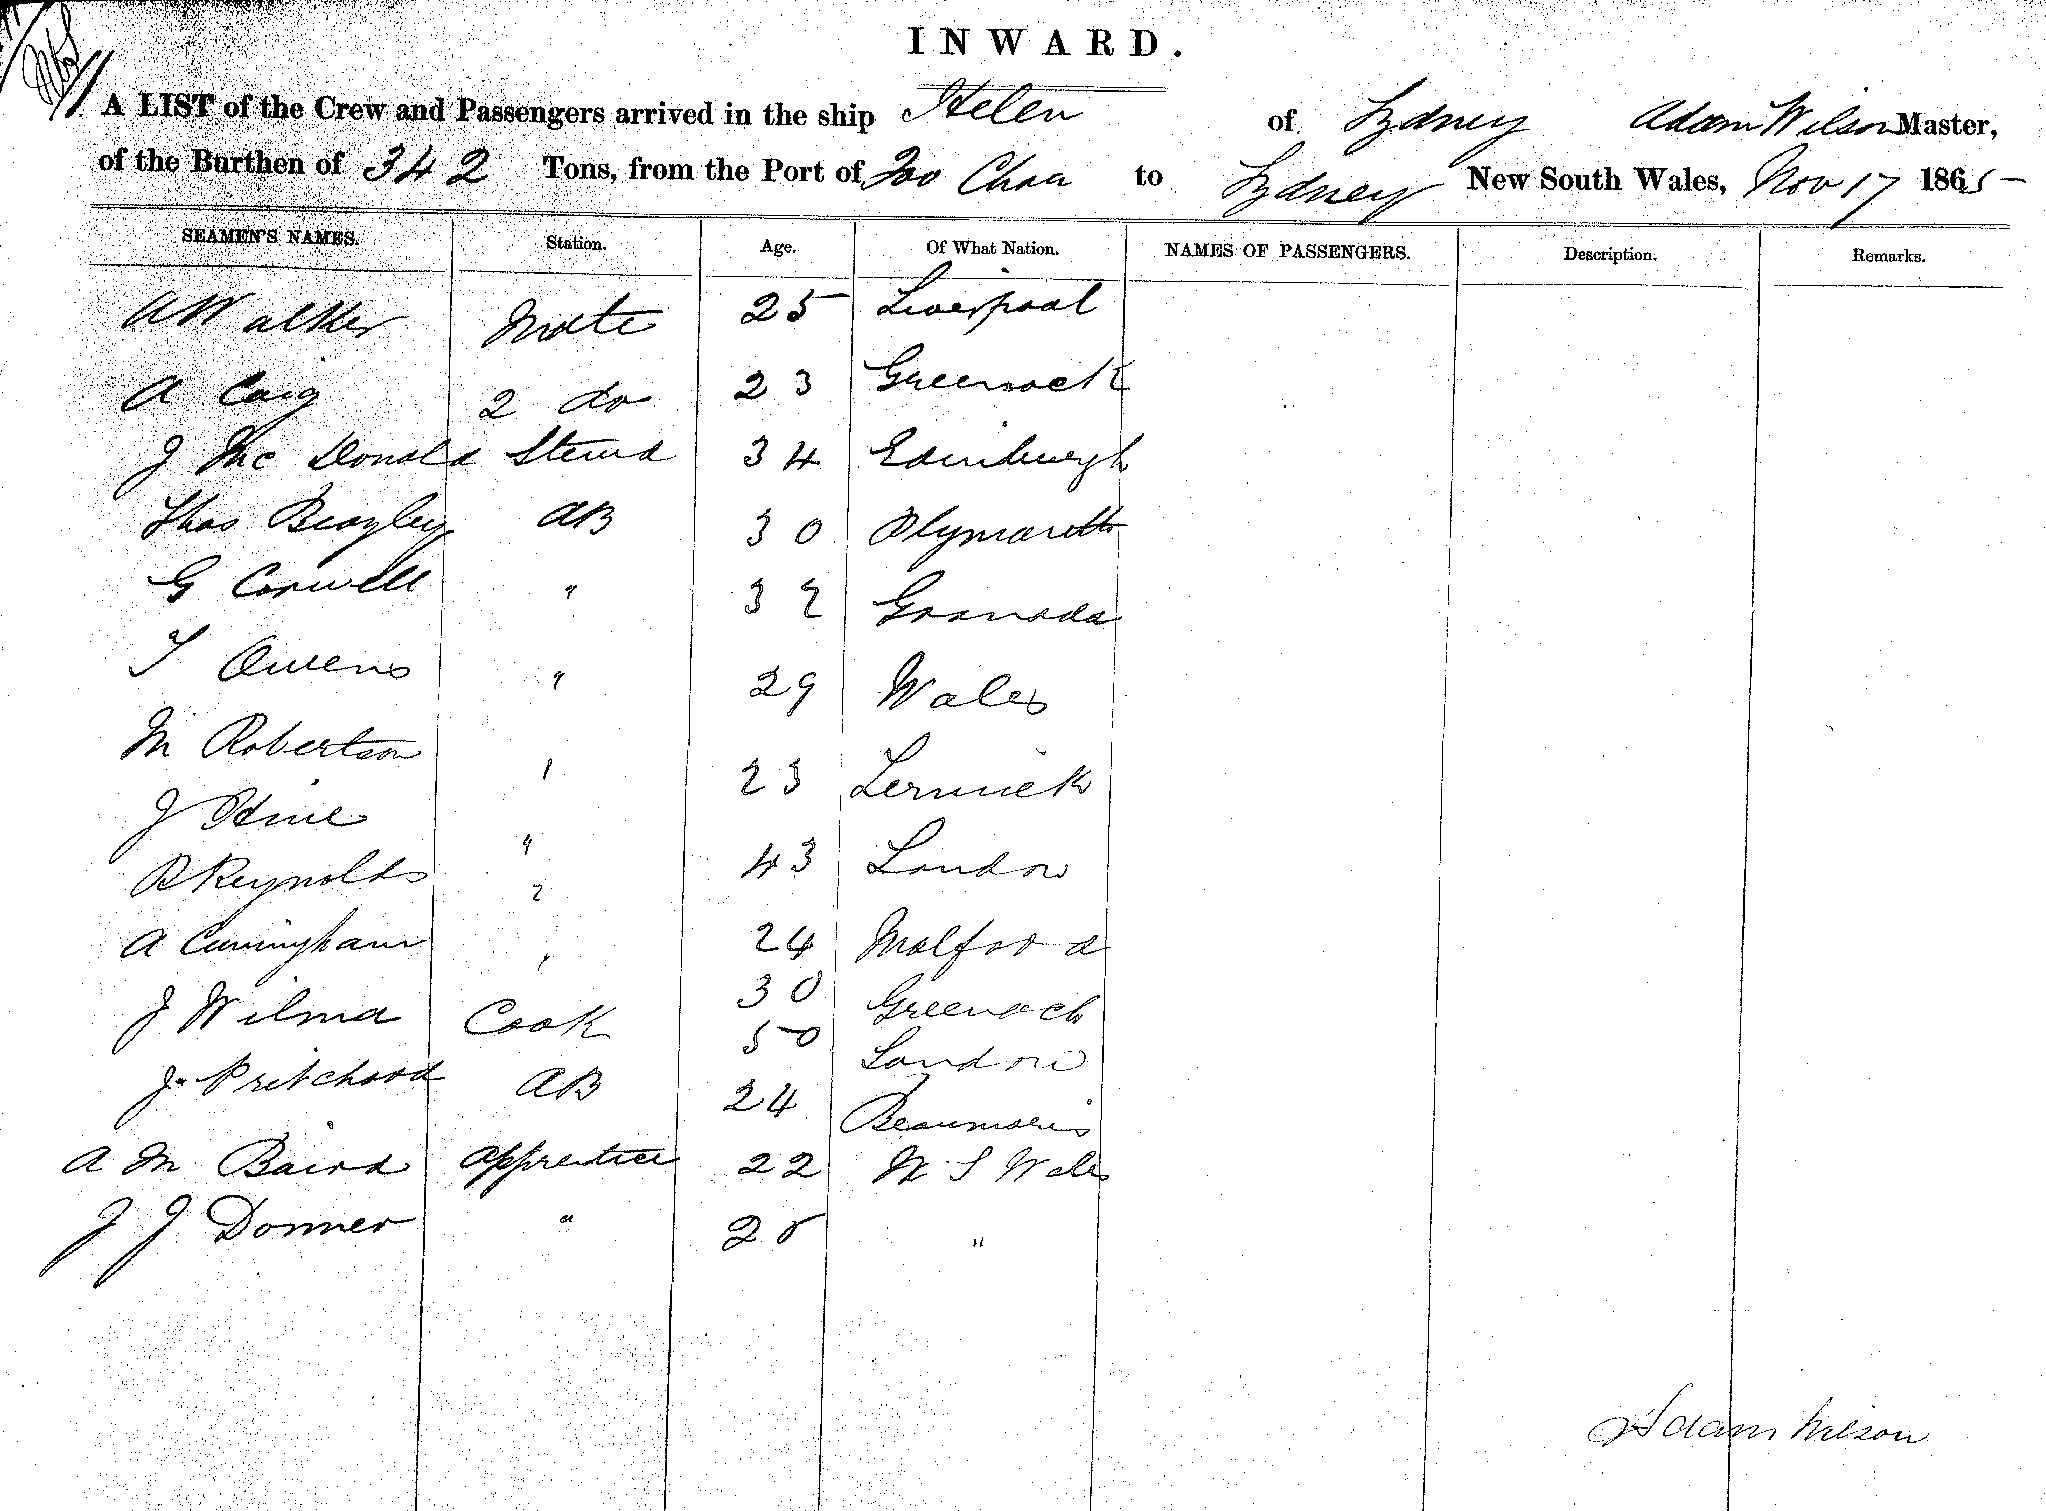 INWARD.
A LIST of the Crew and Passengers arrived in the ship Helen of Sydney Adam Wilson Master,
of the Burthen of 342 Tons, from the Port of Foo Choo to Sydney New South Wales, Nov 17 1865
SEAMEN'S NAMES. Station. Age. Of What Nation. NAMES OF PASSENGERS. Description. Remarks.
A Walker Mate 25 Liverpool
A Caig 2 do 23 Greenock
J McDonald Steward 34 Edinburgh
Thos Beazley AB 30 Plymouth
G Conwell " 32 Granada
T Owens " 29 Wales
M Robertson " 23 Lerwick
J Hine " 43 London
B Reynolds " 24 Malford
A Cuningham " 30 Greenock
J Wilma Cook 50 London
J Pritchard AB 24 Beaumaris
A M Baird Apprentice 22 N S Wales
J J Donner " 20 "
Adam Wilson